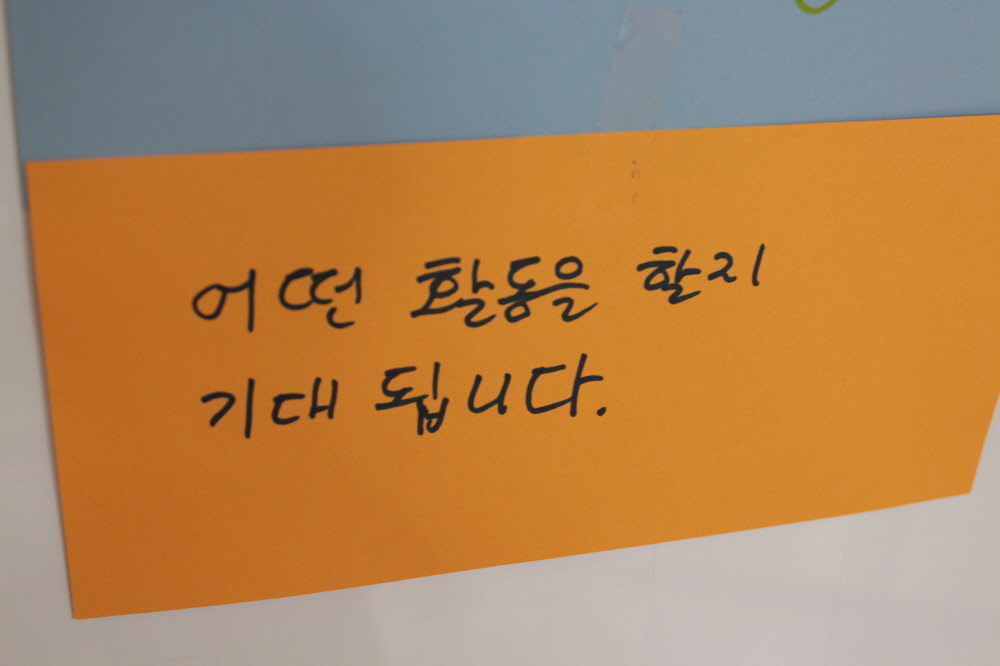 어떤 활동을 할지
기대 됩니다.